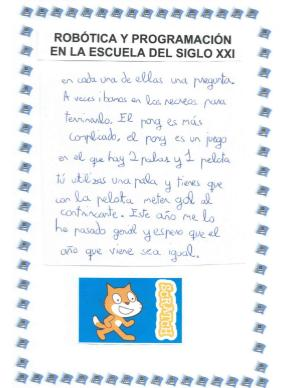 ROBÓTICA Y PROGRAMACIÓN
EN LA ESCUELA DEL SIGLO XXI
en cada una de ellas una pregunta.
A veces ibamos en los recreos para
terminarlo. El pong es más
complicado, el pong es un juego
en el que hay 2 palas y 1 pelota
tú utilizas una pala y tienes que
con la pelota meter gol al
contrincante. Este año me lo
he pasado genial y espero que el
año que viene sea igual.
SCRATCH